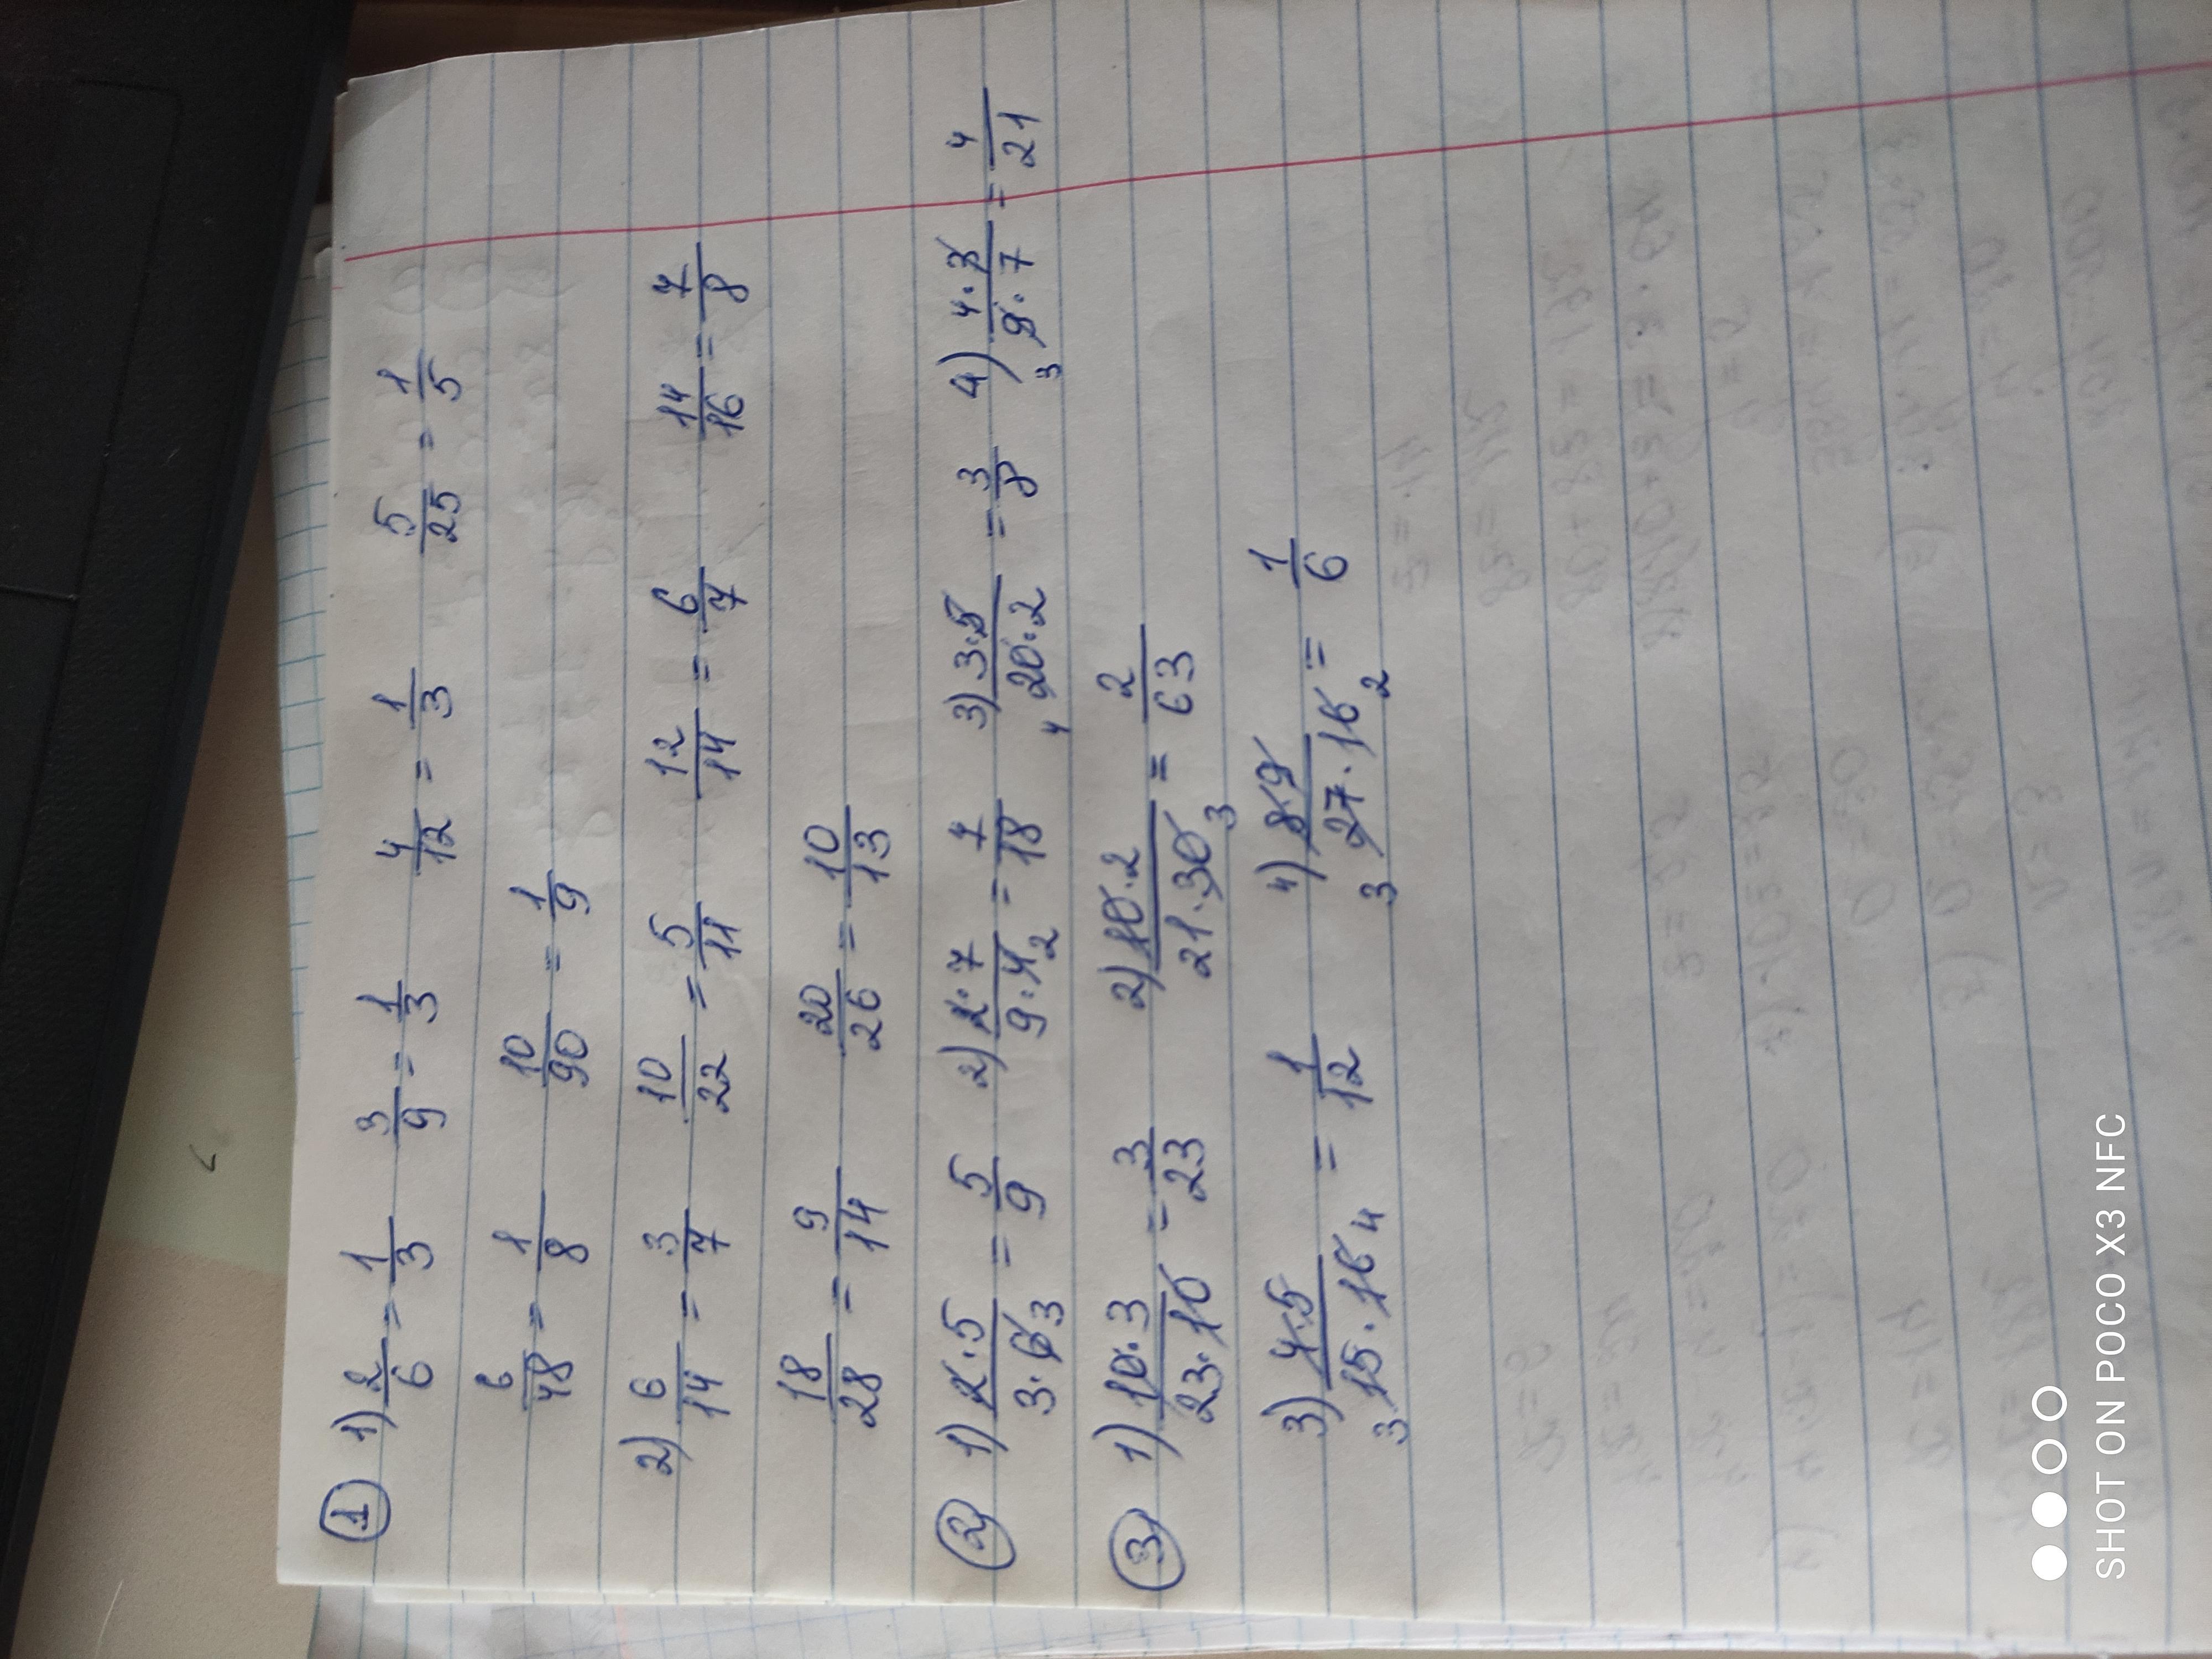 ① 1) 2/6 = 1/3 3/9 = 1/3 4/12 = 1/3 5/25 = 1/5
6/48 = 1/8 10/90 = 1/9
2) 6/14 = 3/7 10/22 = 5/11 12/14 = 6/7 14/16 = 7/8
18/28 = 9/14 20/26 = 10/13
② 1) 2·5/3·6 3 = 5/9 2) 2·7/9·4 2 = 7/18 3) 3·5/4 20·2 = 3/8 4) 4·3/3 9·7 = 4/21
③ 1) 10·3/23·10 = 3/23 2) 10·2/21·30 3 = 2/63
3) 4·5/3 15·16 4 = 1/12 4) 8·9/3 27·16 2 = 1/6
SHOT ON POCO X3 NFC